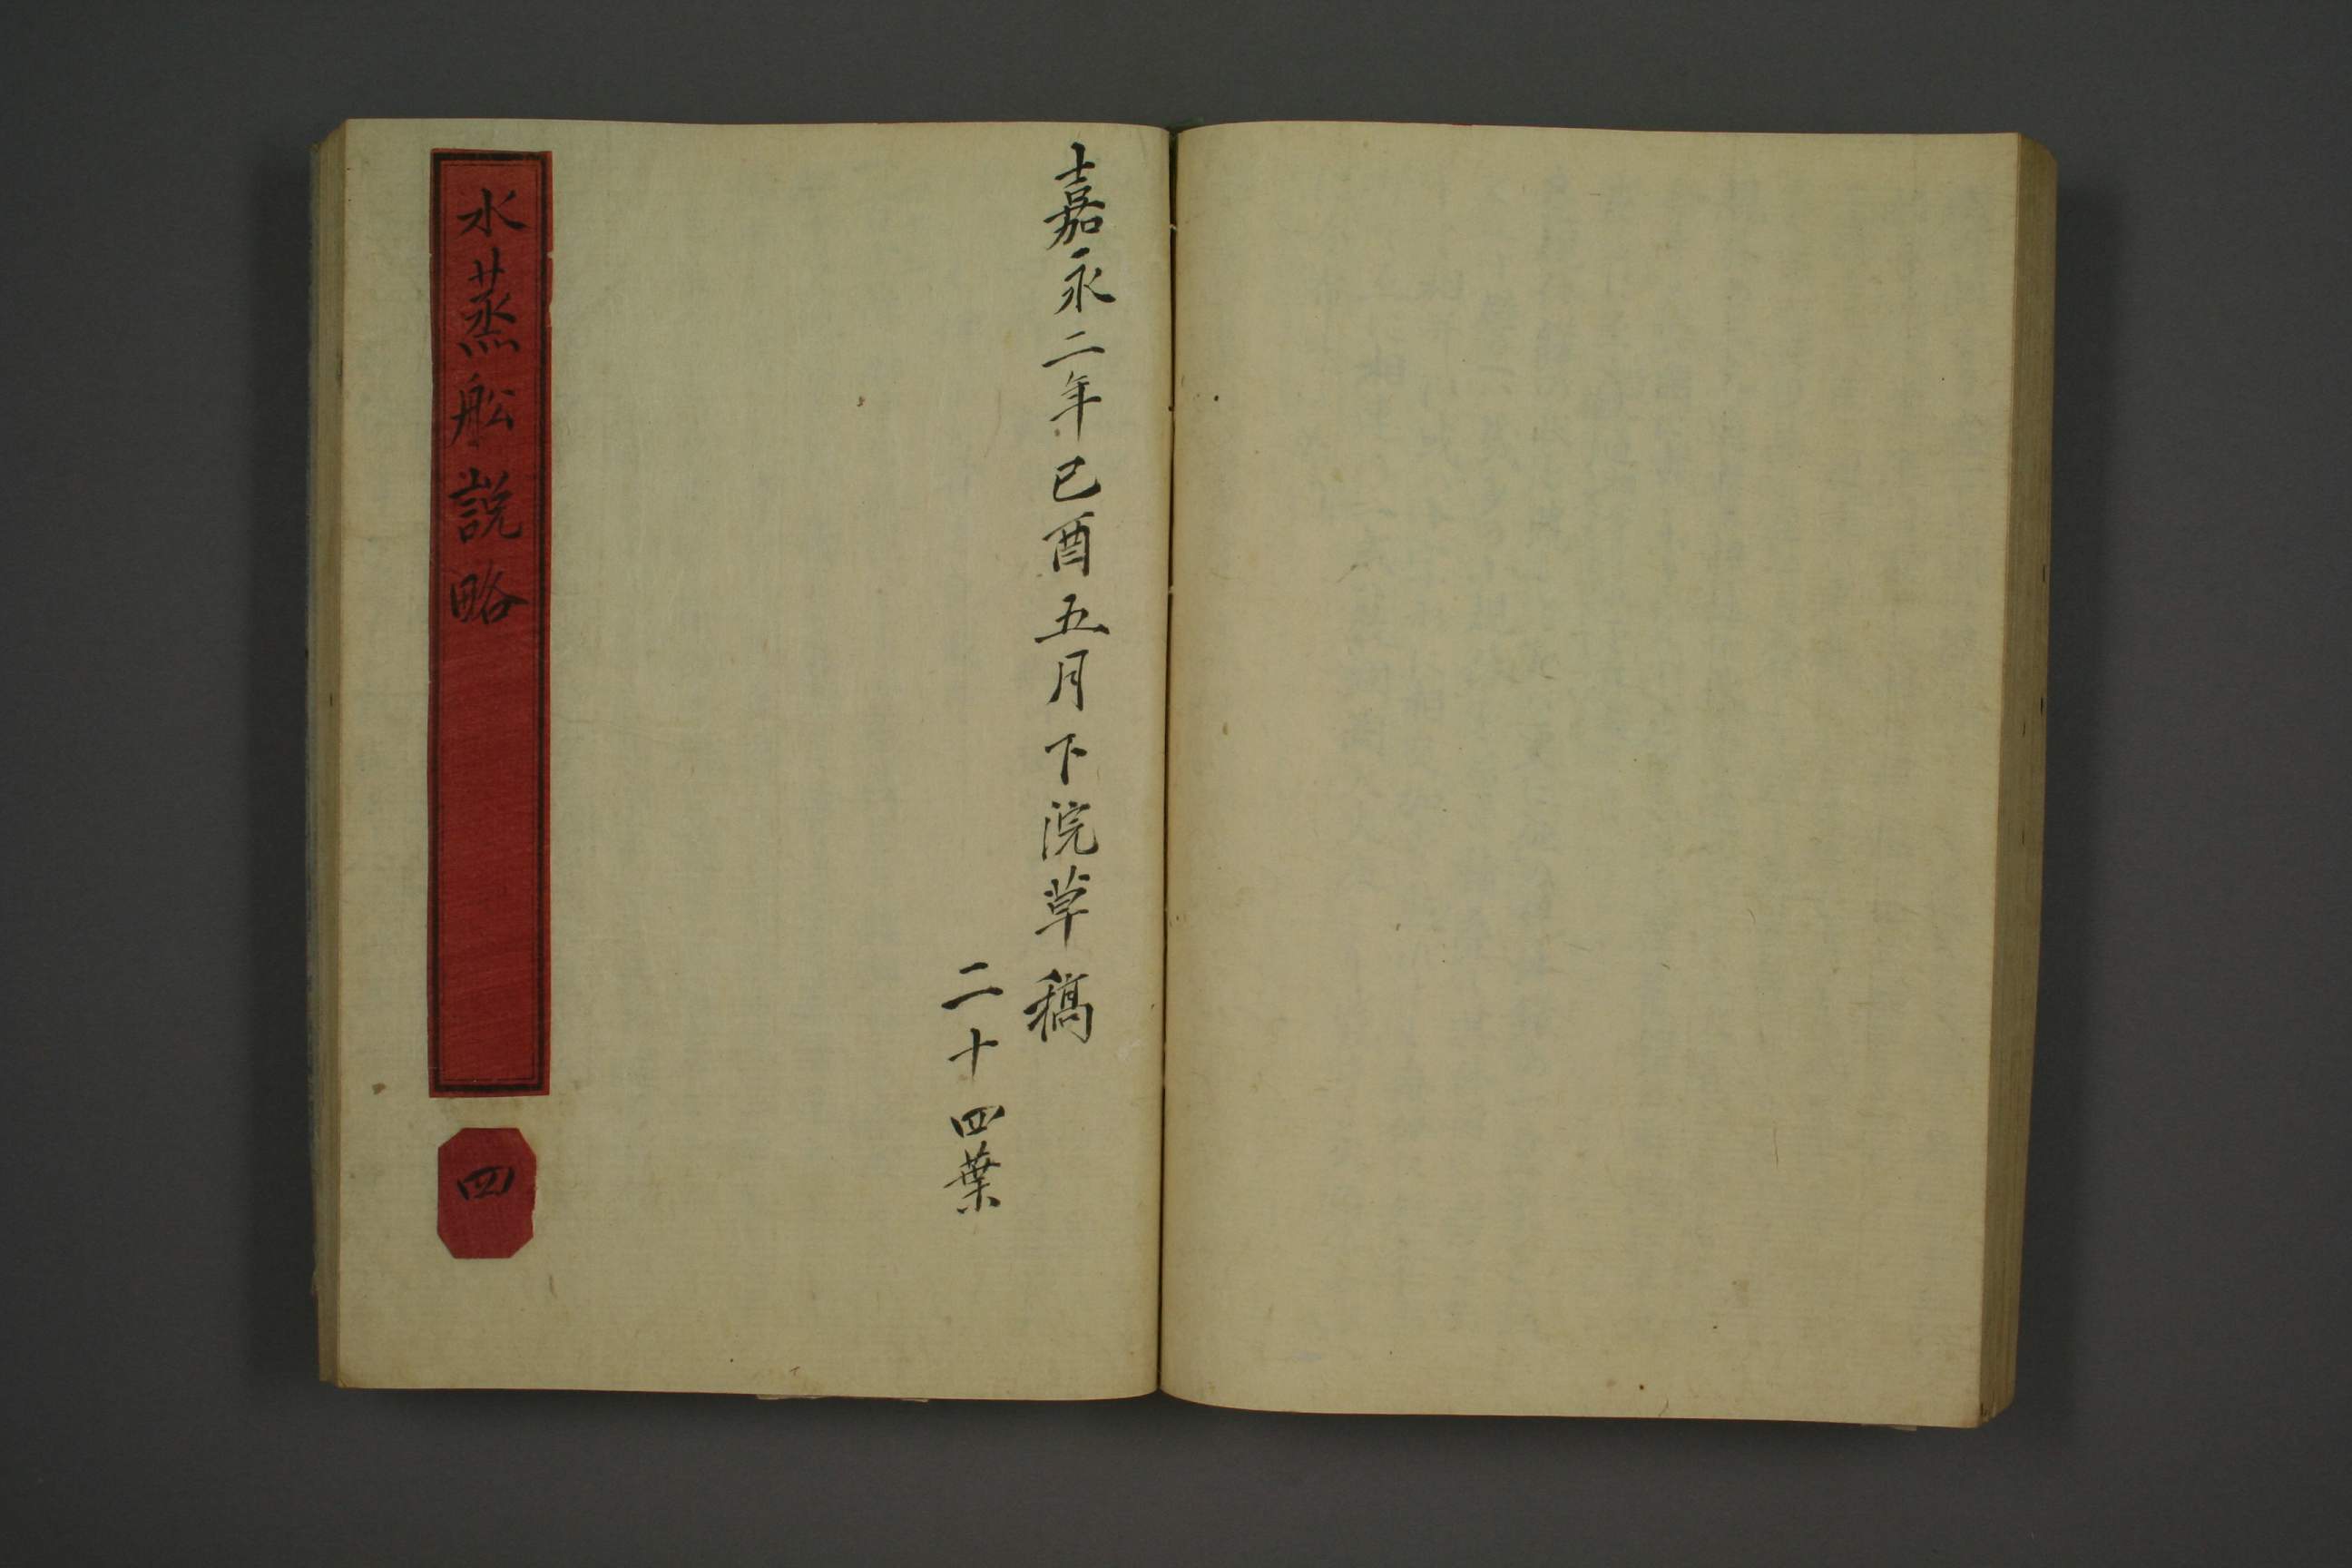 嘉永二年己酉五月下浣草稿
二十四葉
水蒸舩説略
四